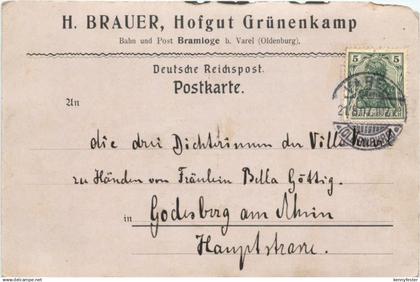 H. BRAUER, Hofgut Grünenkamp
Bahn und Post Bramloge b. Varel (Oldenburg).
Deutsche Reichspost.
Postkarte.
An
5 5
VAREL
(OLDENBURG)
die drei Dichterinnen der Villa
zu Händen von Fräulein Bella Göttig.
in Godesberg am Rhein
Hauptstrasse.